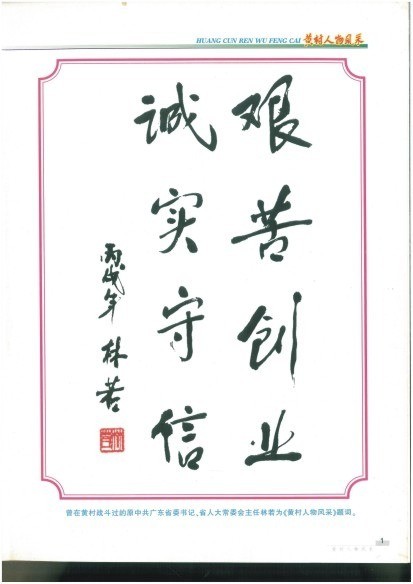 HUANG CUN REN WU FENG CAI 黄村人物风采
艰苦创业
诚实守信
丙戌年 林若
曾在黄村战斗过的原中共广东省委书记、省人大常委会主任林若为《黄村人物风采》题词。
1